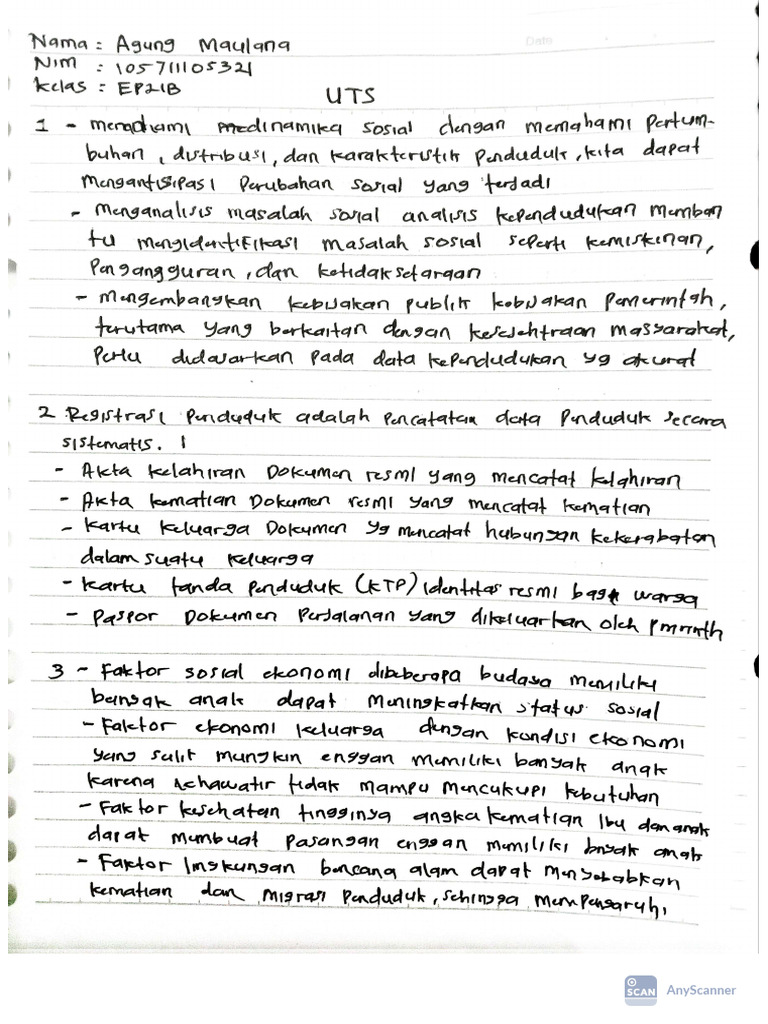 Date
Nama : Agung Maulana
Nim : 105711105321
Kelas : EP21B
UTS
1 - memahami medinamika sosial dengan memahami Pertum-
buhan, distribusi, dan karakteristik Penduduk, kita dapat
Mengantisipasi Perubahan sosial yang terjadi
- Menganalisis masalah sosial analisis kependudukan memban
tu mengidentifikasi masalah sosial seperti kemiskinan,
Pengangguran, dan ketidaksetaraan
- Mengembangkan kebijakan publik kebijakan Pemerintah,
terutama yang berkaitan dengan kesejahtraan masyarakat,
Perlu didasarkan pada data kependudukan yg akurat
2 Registrasi Penduduk adalah Pencatatan data Penduduk secara
sistematis. 1
- Akta kelahiran Dokumen resmi yang mencatat kelahiran
- Akta kematian Dokumen resmi yang mencatat kematian
- Kartu keluarga Dokumen yg mencatat hubungan kekerabatan
dalam suatu keluarga
- Kartu tanda Penduduk (KTP) identitas resmi bagi warga
- Paspor Dokumen Perjalanan yang dikeluarkan oleh Pmrinth
3 - Faktor sosial ekonomi dibeberapa budaya memiliki
banyak anak dapat Meningkatkan status sosial
- Faktor ekonomi keluarga dengan kondisi ekonomi
yang sulit mungkin enggan memiliki banyak anak
karena khawatir tidak mampu mencukupi kebutuhan
- Faktor kesehatan tingginya angka kematian Ibu dan anak
dapat membuat pasangan enggan memiliki bnyak anak
- Faktor lingkungan bencana alam dapat menyebabkan
kematian dan migrasi Penduduk, sehingga mempengaruhi
SCAN AnyScanner